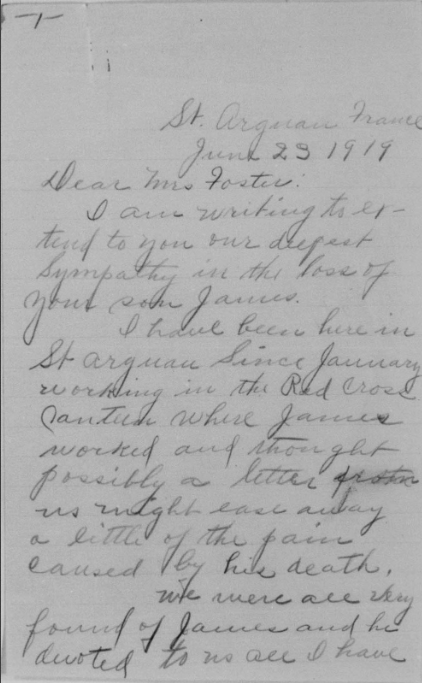 -1-
St. Aignan France
June 23 1919
Dear Mrs Foster:
I am writing to ex-
tend to you our deepest
Sympathy in the loss of
your son James.
I have been here in
St Aignan Since January
working in the Red Cross
Canteen where James
worked and thought
possibly a letter from
us might ease away
a little of the pain
caused by his death.
We were all very
found of James and he
devoted to us all I have